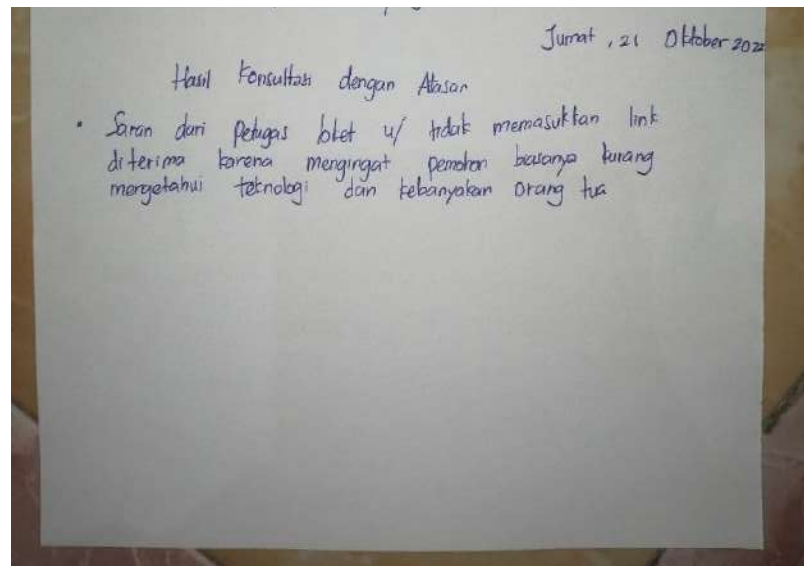 Jumat, 21 Oktober 2022
Hasil Konsultasi dengan Atasan
• Saran dari petugas loket u/ tidak memasukkan link
diterima karena mengingat pemohon biasanya kurang
mengetahui teknologi dan kebanyakan orang tua